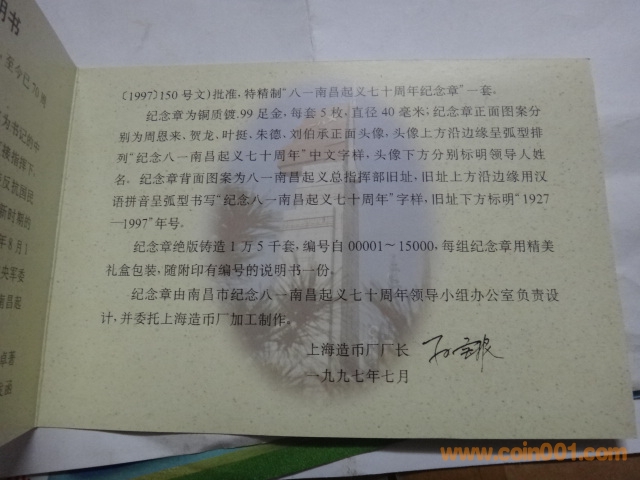 明书
至今已70周
为书记的中
接指挥下,
反我国民
新时期的
年8月1
央军委
南昌起
卓著
发函
〔1997〕150号文)批准,特精制“八一南昌起义七十周年纪念章”一套。
纪念章为铜质镀.99足金,每套5枚,直径40毫米;纪念章正面图案分
别为周恩来、贺龙、叶挺、朱德、刘伯承正面头像,头像上方沿边缘呈弧型排
列“纪念八一南昌起义七十周年”中文字样,头像下方分别标明领导人姓
名。纪念章背面图案为八一南昌起义总指挥部旧址,旧址上方沿边缘用汉
语拼音呈弧型书写“纪念八一南昌起义七十周年”字样,旧址下方标明“1927
—1997”年号。
纪念章绝版铸造1万5千套,编号自00001~15000,每组纪念章用精美
礼盒包装,随附印有编号的说明书一份。
纪念章由南昌市纪念八一南昌起义七十周年领导小组办公室负责设
计,并委托上海造币厂加工制作。
上海造币厂厂长
一九九七年七月
www.coin001.com